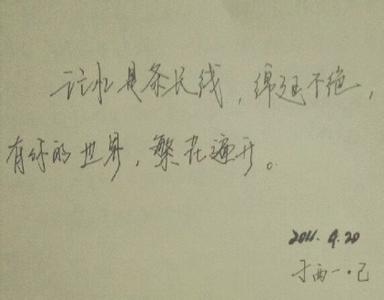 记忆是条长线，绵延不绝，
有你的世界，繁花遍开。
2011.9.20
于西一·己